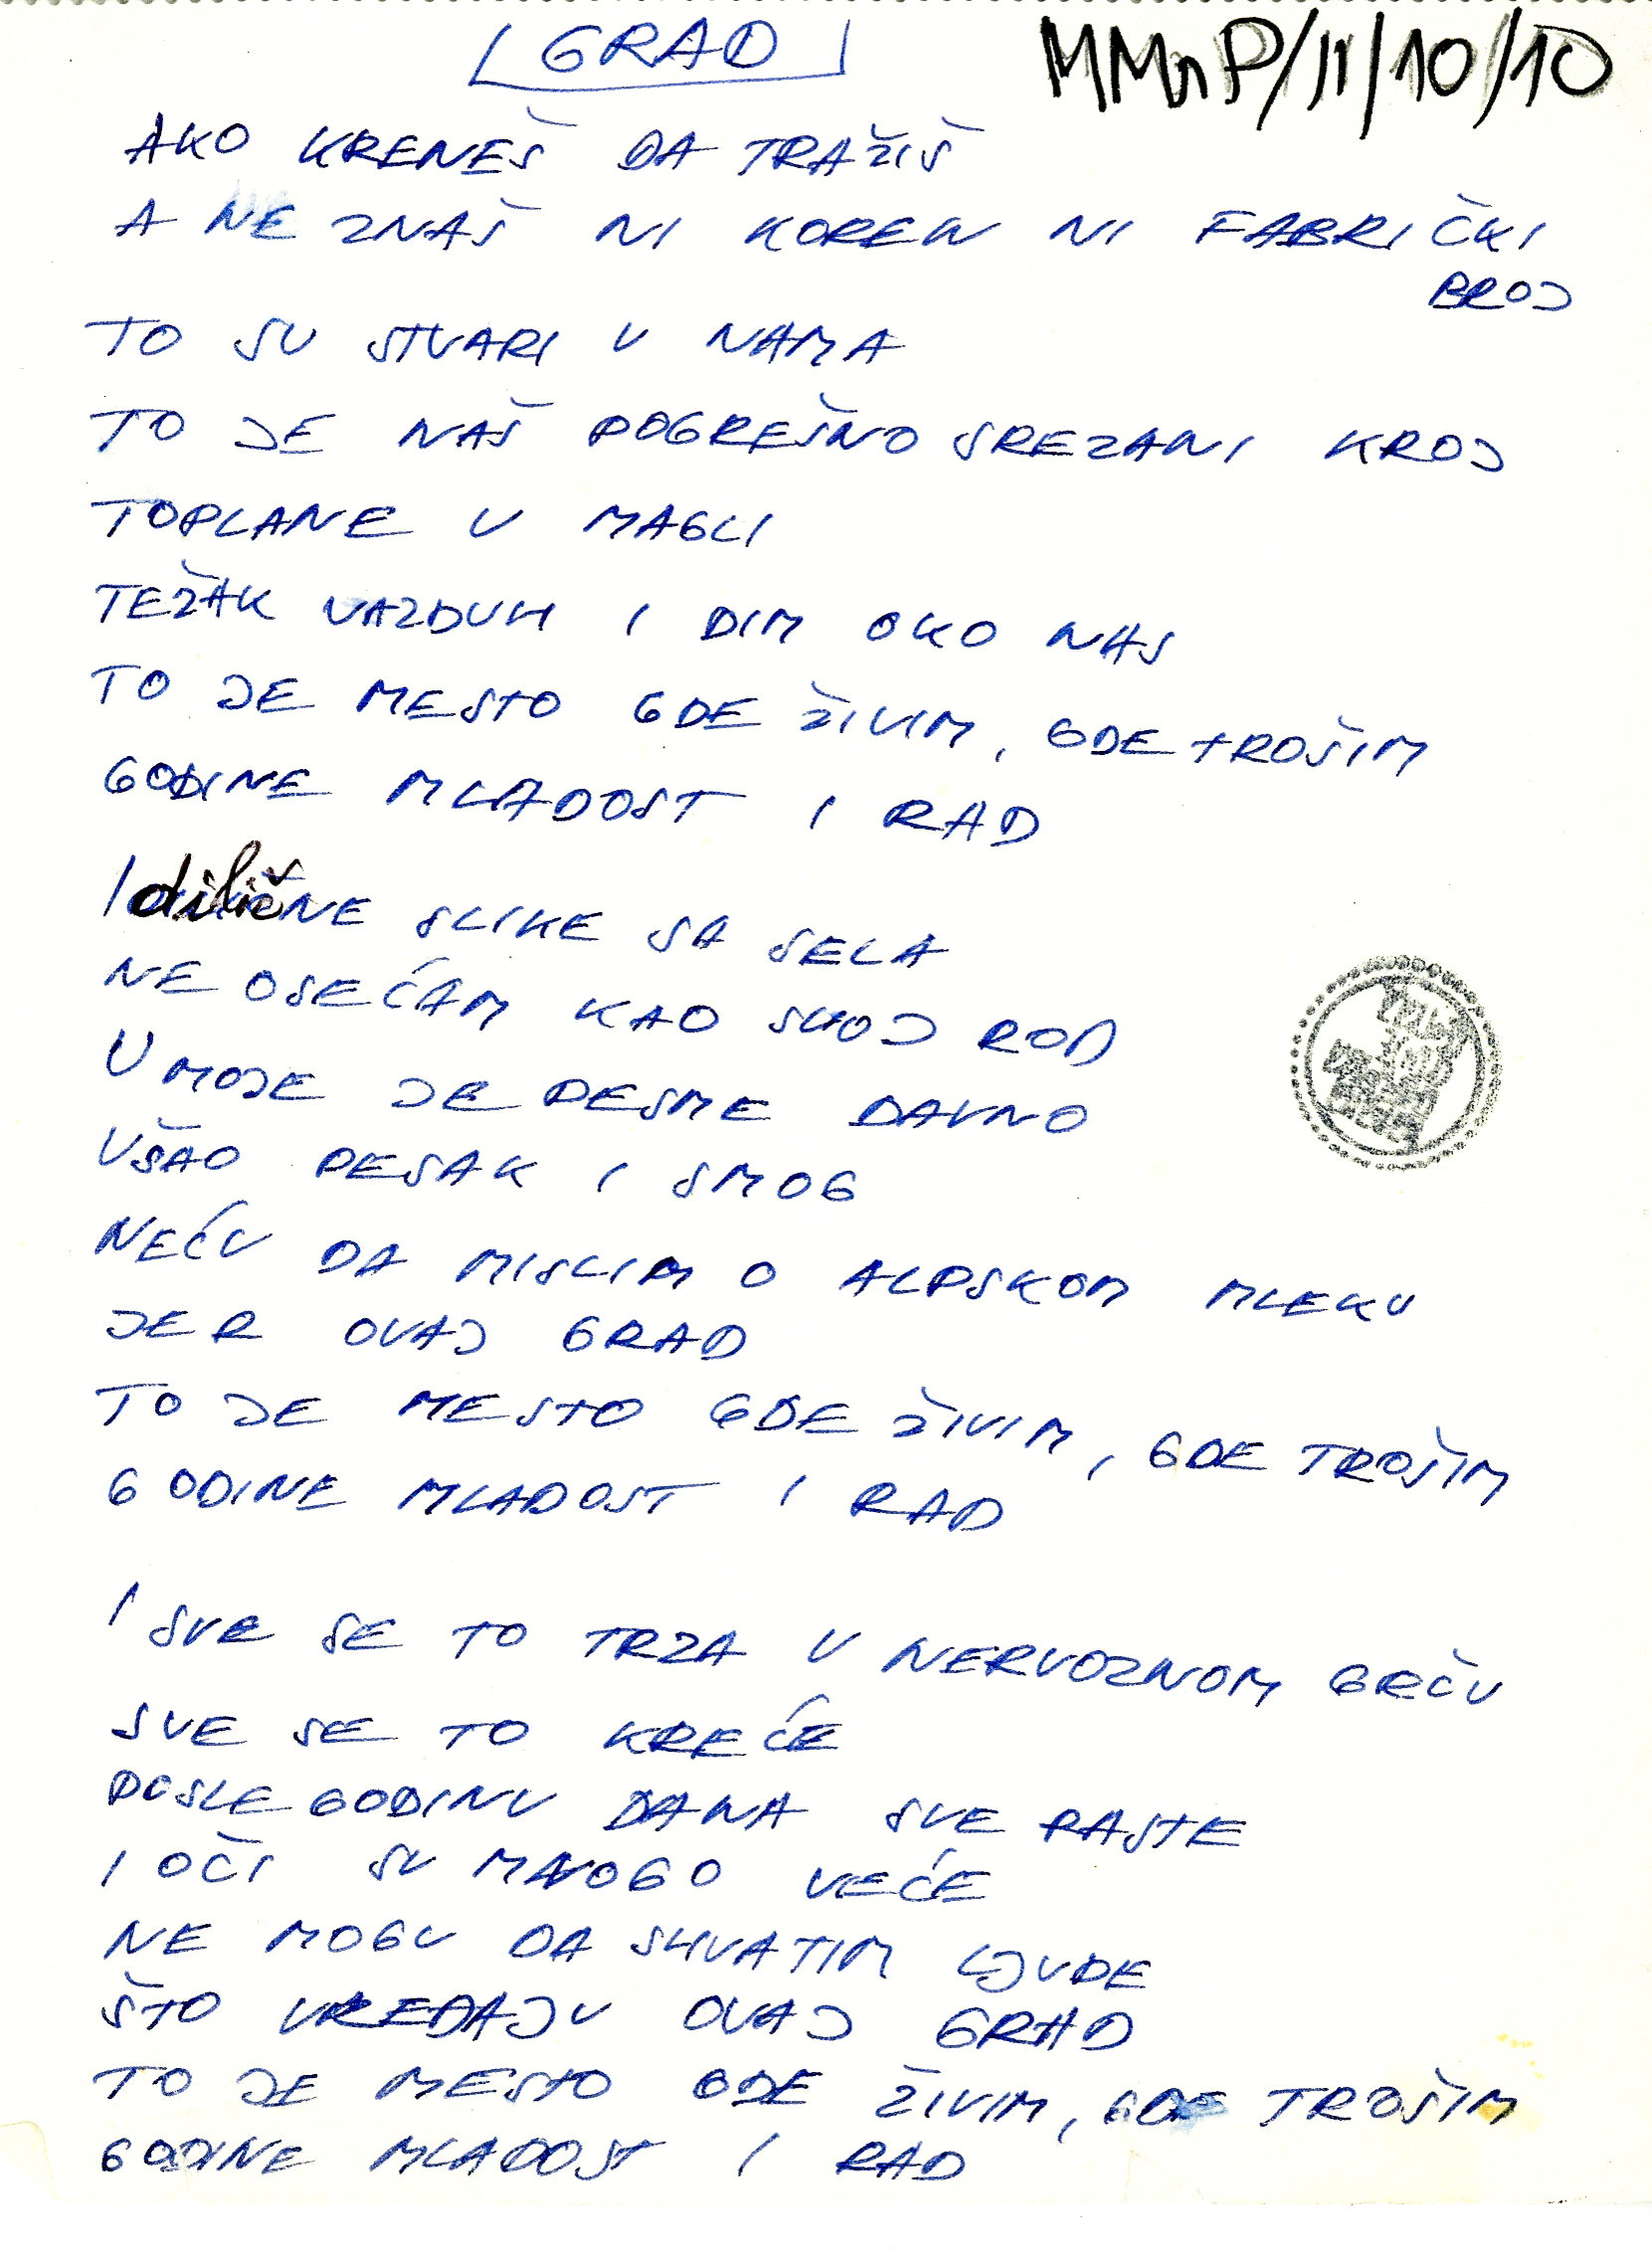 GRAD
MMnP/11/10/10
AKO KRENEŠ DA TRAŽIŠ
A NE ZNAŠ NI KOREN NI FABRIČKI
BROJ
TO SU STVARI U NAMA
TO JE NAŠ POGREŠNO SREZANI KROJ
TOPLANE U MAGLI
TEŽAK VAZDUH I DIM OKO NAS
TO JE MESTO GDE ŽIVIM, GDE TROŠIM
GODINE MLADOST I RAD
Idilične SLIKE SA SELA
NE OSEĆAM KAO SVOJ ROD
U MOJE JE PESME DAVNO
UŠAO PESAK I SMOG
NEĆU DA MISLIM O ALPSKOM MLEKU
JER OVAJ GRAD
TO JE MESTO GDE ŽIVIM, GDE TROŠIM
GODINE MLADOST I RAD
I SVE SE TO TRZA U NERVOZNOM GRČU
SVE SE TO KREĆE
POSLE GODINU DANA SVE RASTE
I OČI SU MNOGO VEĆE
NE MOGU DA SHVATIM LJUDE
ŠTO VREĐAJU OVAJ GRAD
TO JE MESTO GDE ŽIVIM, GDE TROŠIM
GODINE MLADOST I RAD